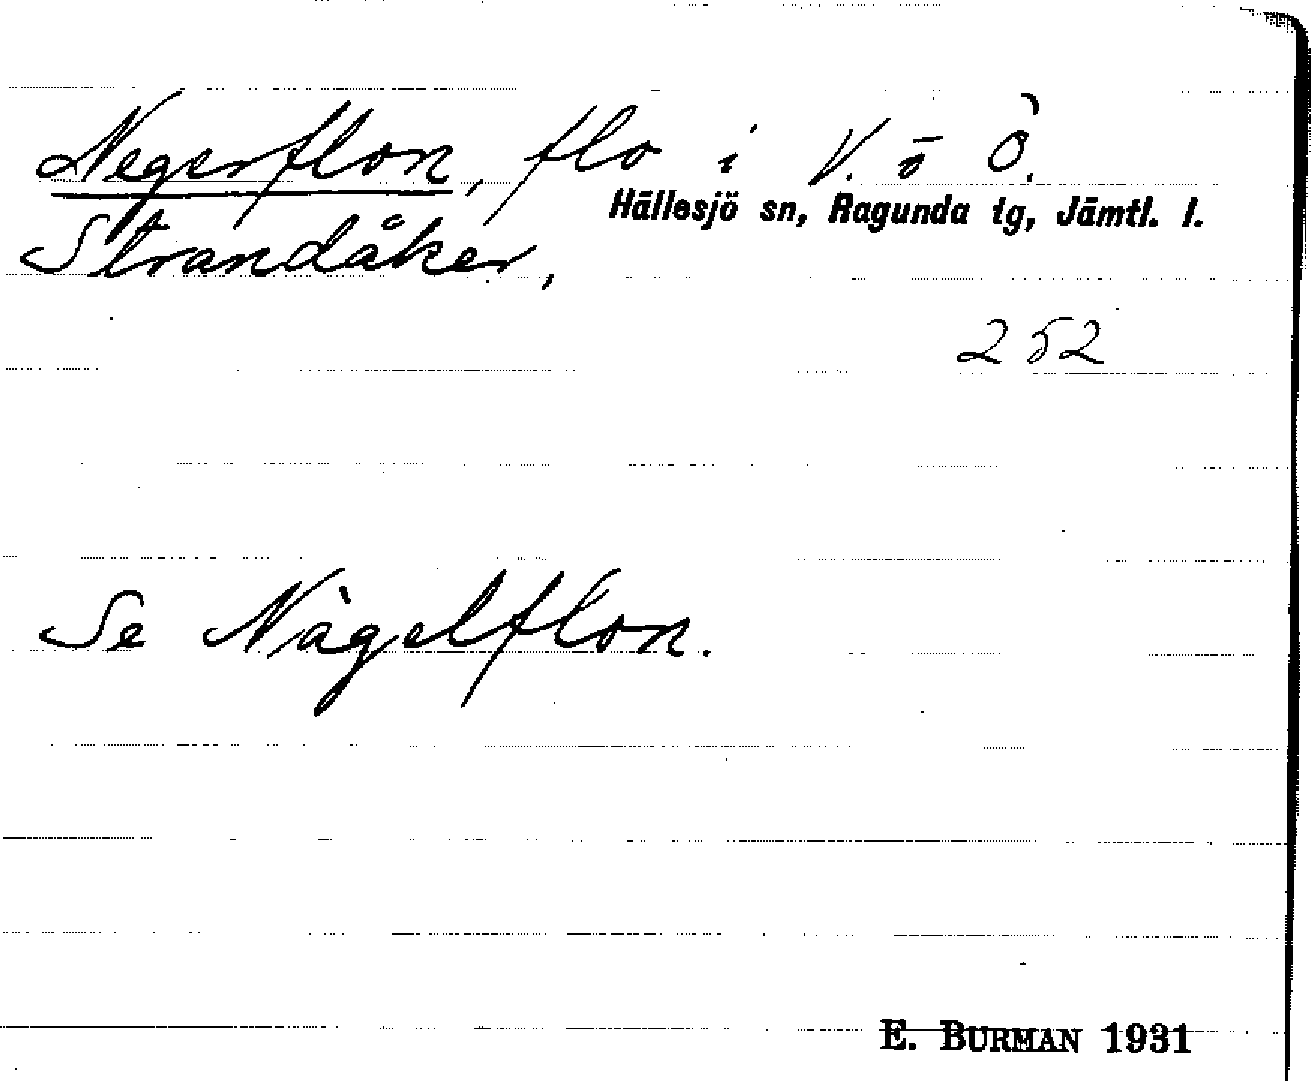 Negerflon, flo i V. o Ö.
Hällesjö sn, Ragunda tg, Jämtl. l.
Strandåker,
252
Se Nägelflon.
E. BURMAN 1931